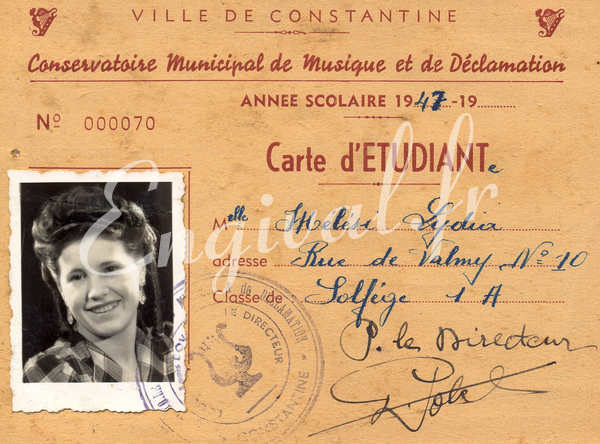 VILLE DE CONSTANTINE
Conservatoire Municipal de Musique et de Déclamation
ANNEE SCOLAIRE 1947-19
Nº 000070
Carte d'ETUDIANTe
Melle Melisi Lydia
adresse Rue de Valmy Nº 10
Classe de Solfége 1 A
P. le Directeur
DE DÉCLAMATION
LE DIRECTEUR
CONSTANTINE
Engival.fr